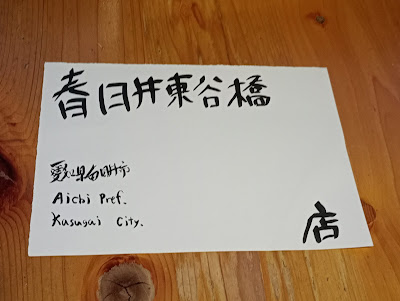 春日井東谷橋
愛知県春日井市
Aichi Pref.
Kasugai City.
店